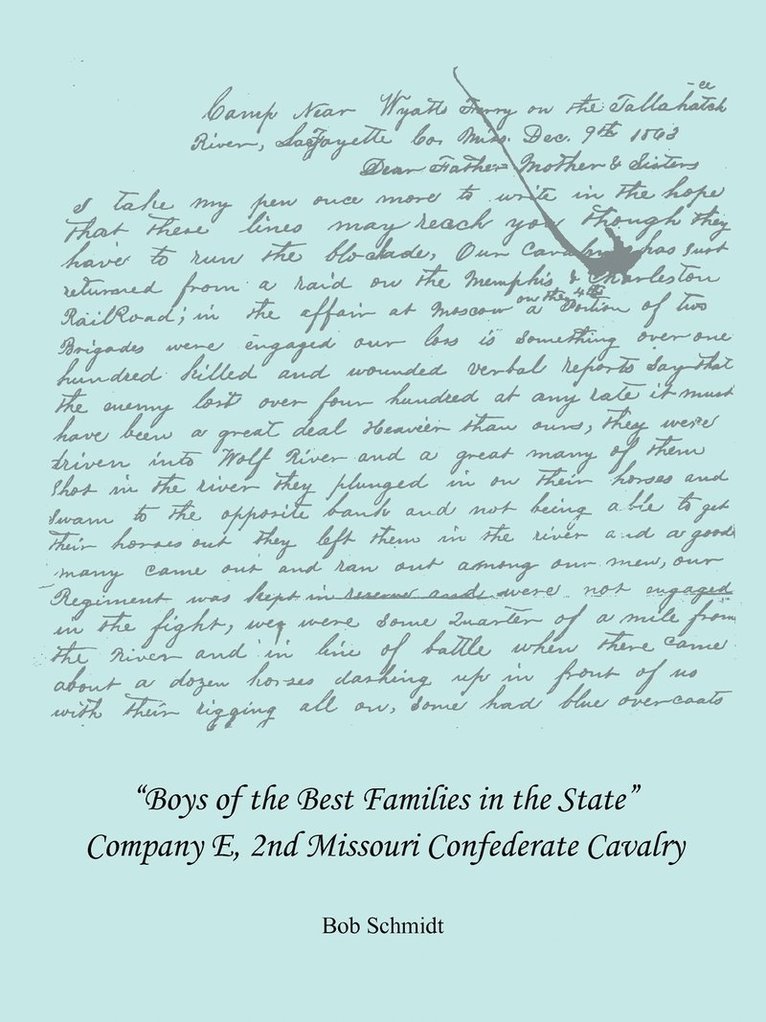 Camp Near Wyatts Ferry on the Tallahatch-ce
River, LaFayette Co. Miss. Dec. 9th 1863
Dear Father Mother & Sisters
I take my pen once more to write in the hope
that these lines may reach you though they
have to run the blockade, Our Cavalry has just
returned from a raid on the Memphis & Charleston
RailRoad; in the affair at Moscow on the 4th a Portion of two
Brigades were engaged our loss is something over one
hundred killed and wounded verbal reports say that
the enemy lost over four hundred at any rate it must
have been a great deal Heavier than ours, they were
driven into Wolf River and a great many of them
shot in the river they plunged in on their horses and
swam to the opposite bank and not being able to get
their horses out they left them in the river and a good
many came out and ran out among our men, our
Regiment was kept in reserve and were not engaged
in the fight, we were some Quarter of a mile from
the River and in line of battle when there came
about a dozen horses dashing up in front of us
with their rigging all on, some had blue overcoats
“Boys of the Best Families in the State”
Company E, 2nd Missouri Confederate Cavalry
Bob Schmidt